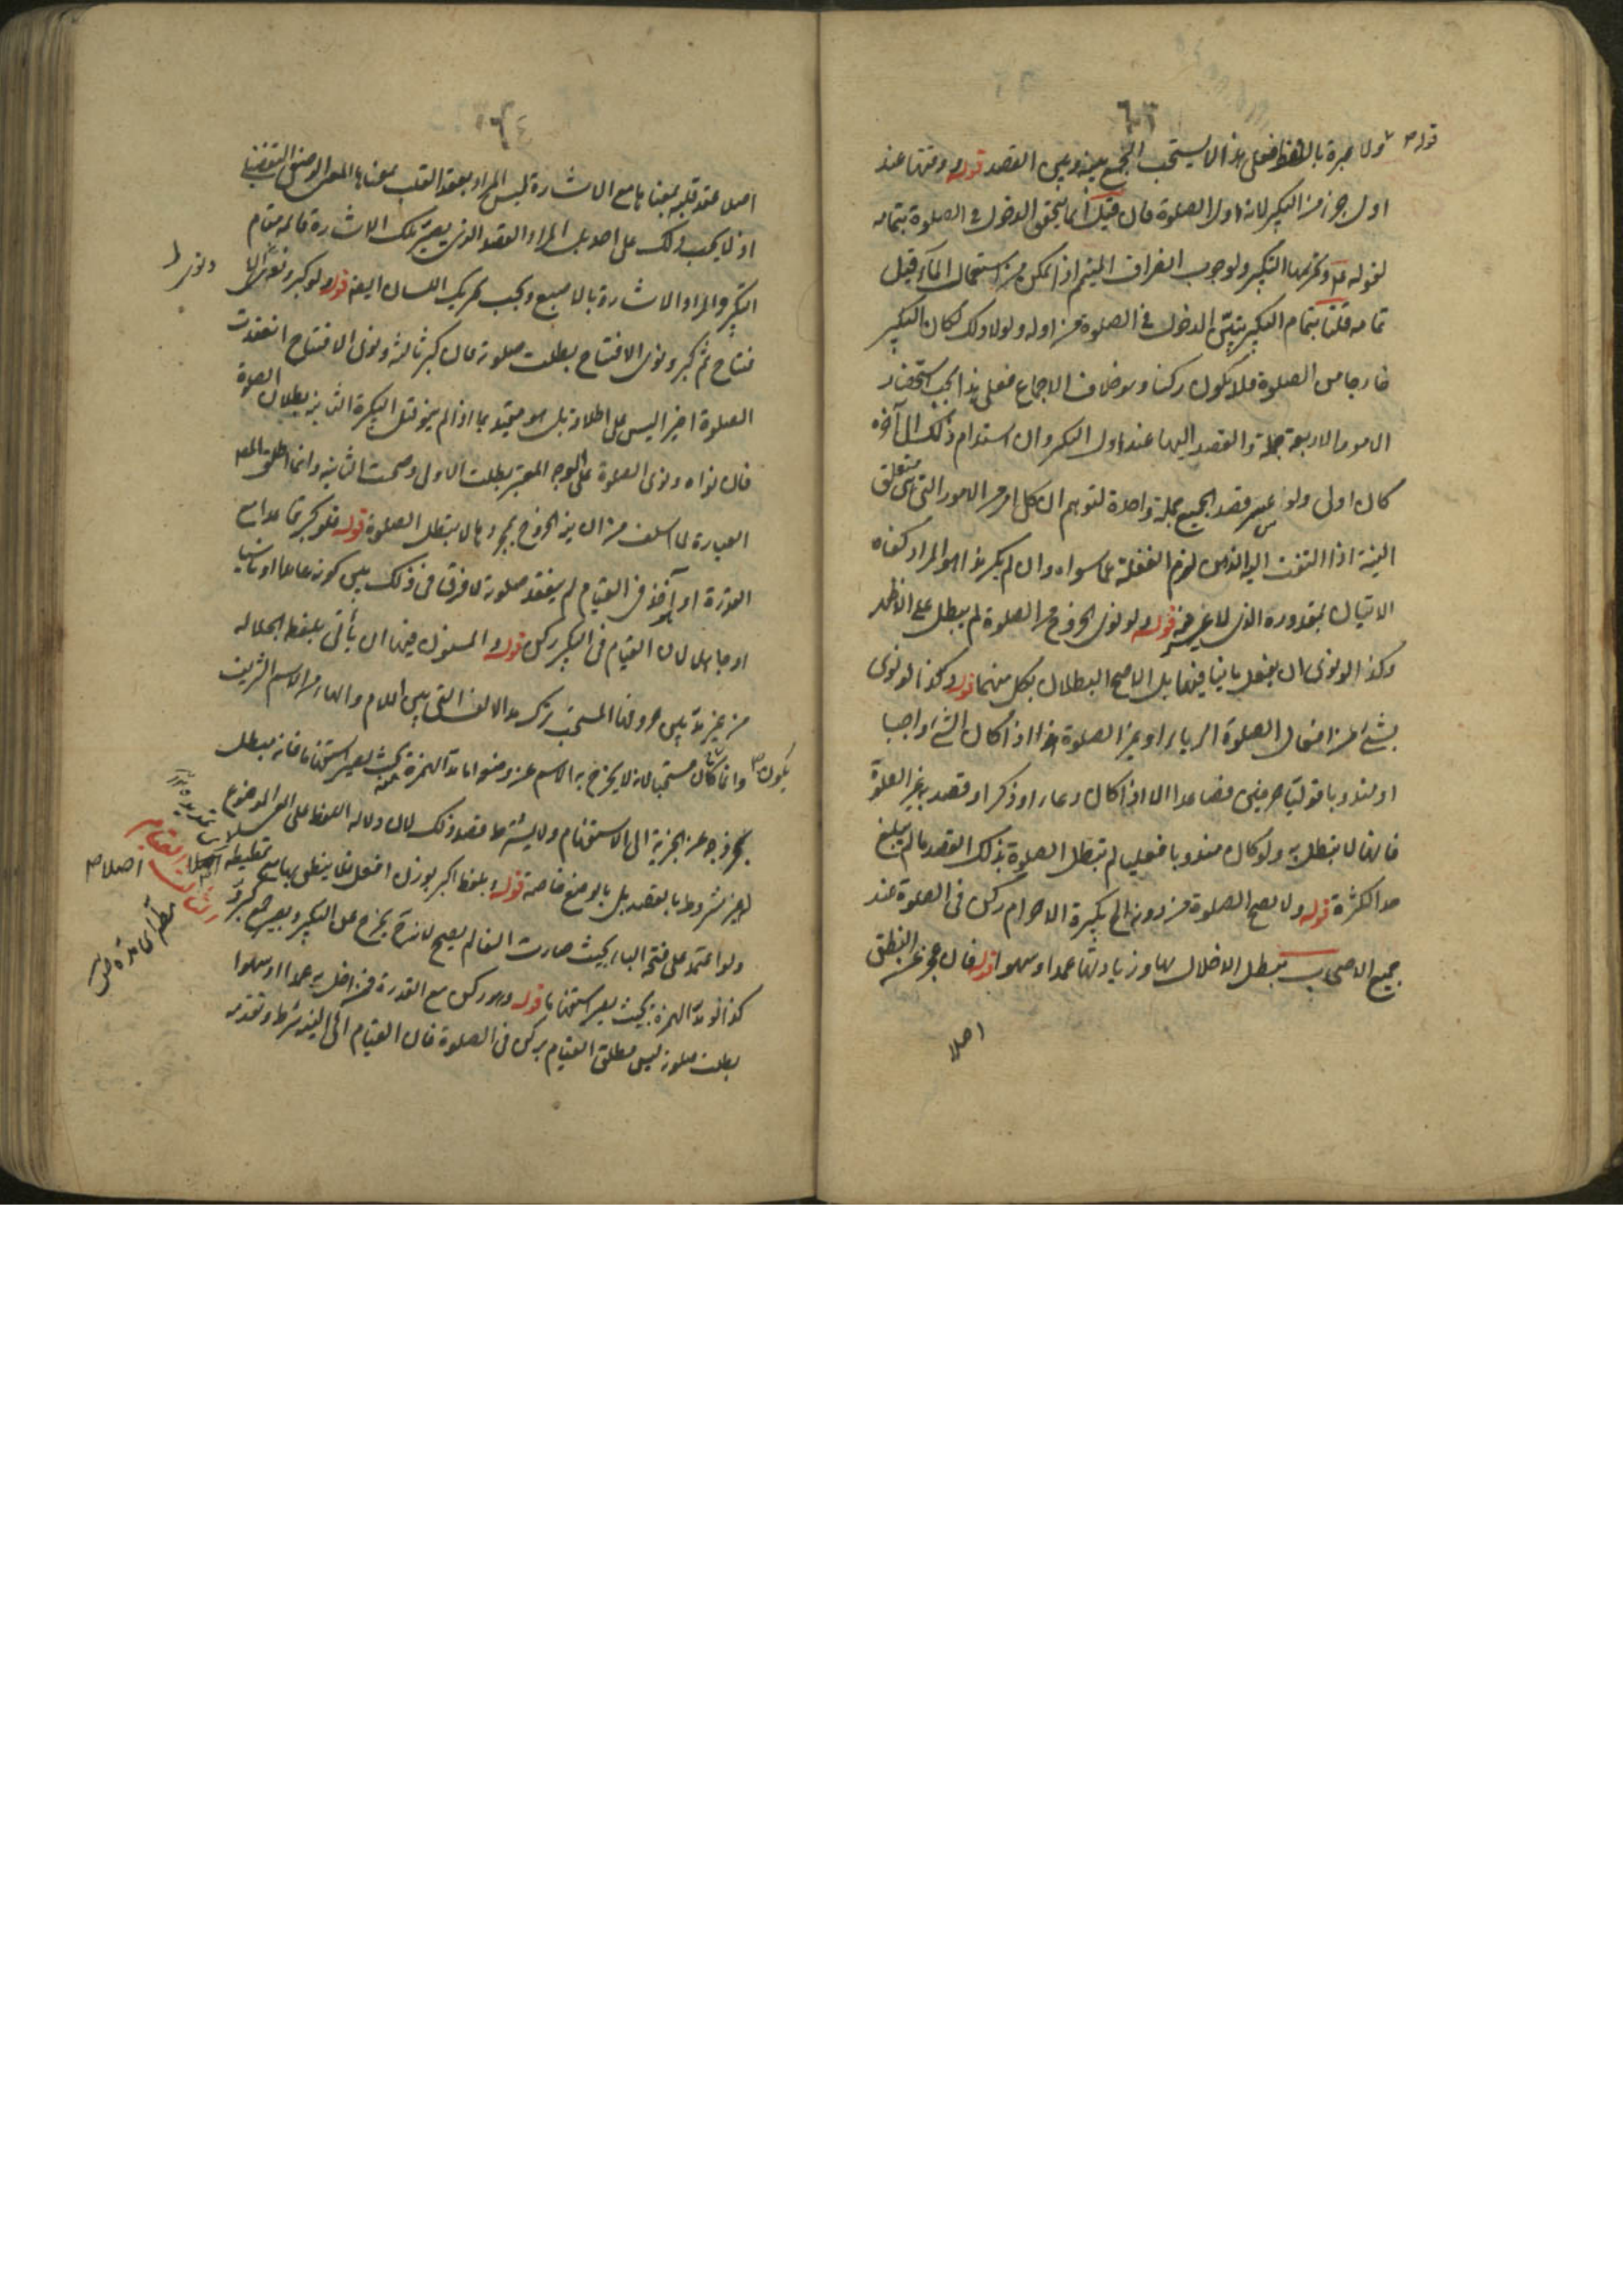 ٦٣
قوله ولا عبرة باللفظ فعلى هذا لا يستحب الجمع بينه وبين القصد قوله ووقتها عند
اول جزء من التكبير لانه اول الصلوة فان قيل انما يتحقق الدخول في الصلوة بتمامه
لقوله وتحريمها التكبير ولوجوب انصراف المتيمم اذا تمكن من استعمال الماء قبل
تمامه قلنا بتمام التكبير يتبين الدخول في الصلوة من اوله ولولا ذلك لكان التكبير
خارجا من الصلوة فلا يكون ركنا وهو خلاف الاجماع فعلى هذا يجب استحضار
الامور الاربعة جملة والقصد اليها عند اول التكبير وان استدام ذلك الى آخره
كان اولى ولو عسر قصد الجميع جملة واحدة لتوهم ان كل امر من الامور التي هي متعلق
النية اذا التفت اليه الذهن لزم الغفلة عما سواه وان لم يكن هذا هو المراد كفاه
الاتيان بمقدوره الذي لا عسر فيه قوله ولو نوى الخروج من الصلوة لم يبطل على الاظهر
وكذا لو نوى ان يفعل ما ينافيها بل الاصح البطلان بكل منهما قوله وكذا لو نوى
بشئ من افعال الصلوة الرياء او غير الصلوة هذا اذا كان الشئ واجبا
او مندوبا قوليا حرفين فصاعدا الا اذا كان دعاء او ذكرا وقصد به غير الصلوة
فانها لا تبطل به ولو كان مندوبا فعليا لم تبطل الصلوة بذلك القصد ما لم يبلغ
حد الكثرة قوله ولا يصح الصلوة من دونها اي تكبيرة الاحرام ركن في الصلوة عند
جميع الاصحاب تبطل الاخلال بها وزيادتها عمدا وسهوا قوله فان عجز عن النطق
اصلا
٦٤
اصلا عقد قلبه بمعناها مع الاشارة ليس المراد بعقد القلب بمعناها المعنى الوصفي
اذ لا يجب ذلك على احد بل المراد القصد الذي يصير تلك الاشارة قائمة مقام
التكبير والمراد الاشارة بالاصبع ويجب تحريك اللسان ايضا قوله ولو كبر ونوى الا
ونوى
فتتاح ثم كبر ونوى الافتتاح بطلت صلوته فان كبر ثالثة ونوى الافتتاح انعقدت
الصلوة اخيرا ليس على اطلاقه بل هو مقيد بما اذا لم ينو قبل التكبيرة الثانية بطلان الصلوة
فان نواه ونوى الصلوة على الوجه المعتبر بطلت الاولى وصحت الثانية وانما اطلق المص
العبارة لما سلف من ان نية الخروج بمجردها لا تبطل الصلوة قوله فلو كبر قاعدا مع
القدرة او هو آخذ في القيام لم ينعقد صلوته لا فرق في ذلك بين كونه عامدا او ناسيا
او جاهلا لان القيام في التكبير ركن قوله والمسنون فيها ان يأتي بلفظ الجلالة
من غير مد بين حروفها المستحب ترك مد الالف التي بين اللام والهاء من الاسم الشريف
وانما كان مستحبا لانه لا يخرج به الاسم عن وضعه اما مد الهمزة بحيث يصير استفهاما فانه مبطل
يكون
بخروجه عن الجزئية الى الاستفهام ولا يشترط قصد ذلك لان دلالة اللفظ على الموضوع
له غير مشروط بالقصد بل بالوضع خاصة قوله وبلفظ اكبر بوزن افعل
اصلا
ولو اعتمد على فتحة الباء بحيث صارت الفا لم يصح لانه يخرج عن التكبير ويصير جمع كبر
كذا لو مد الهمزة بحيث يصير استفهاما قوله وهو ركن مع القدرة فمن اخل به عمدا او سهوا
بطلت صلوته ليس مطلق القيام بركن في الصلوة فان القيام الى النية شرط وتقدمه